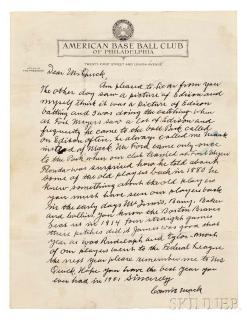 AMERICAN BASE BALL CLUB
OF PHILADELPHIA
TWENTY-FIRST STREET AND LEHIGH AVENUE
Dear Mr
Am pleased to hear from you
The other day saw a picture of Edison and
myself think it was a picture of Edison
batting and I was doing the catching when
at Fort Myers saw a lot of Edison and
frequently he came to the ball Park called
on Edison often, he always called me
instead of Mack Mr Ford came only once
to the Park when our club trained at Fort Myers
was surprised how he talked about
some of the old players back in 1880 he
knew something about the old players
you must have seen our players back
in the early days Mr Innis, Barry, Baker
and Collins you know the Boston Braves
beat us in 1914 four straight games
three pitchers did it James was good that
year as was Rudolph and Tyler Most
of our players went to the Federal League
the next year please remember me to Mr
Hope you have the best year you
ever had in 1951 Sincerely
Connie Mack
SKINNER